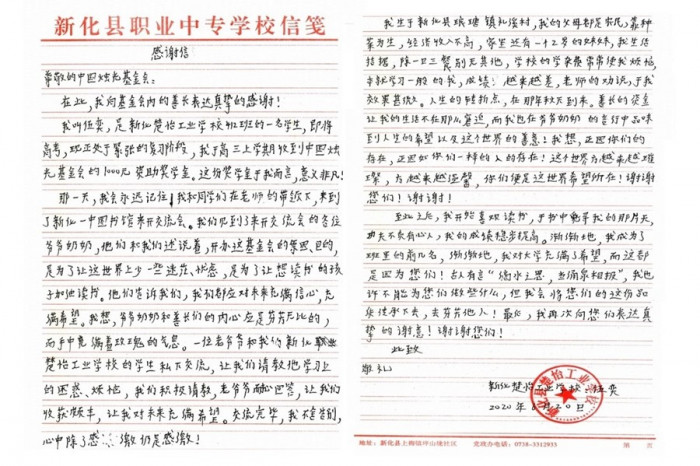 新化县职业中专学校信笺
感谢信
尊敬的中国烛光基金会:
在此,我向基金会内的善长表达真挚的感谢!
我叫伍奕,是新化楚怡工业学校 班的一名学生,即将
高考,现正处于紧张的复习阶段,我于高三上学期收到中国烛
光基金会的1000元奖助奖学金。这份奖学金于我而言,意义非凡!
那一天,我会永远记住,我和同学们在老师的带领下,来到
了新化一中图书馆来开交流会。我们见到了来开交流会的各位
爷爷奶奶,他们和我们述说着,开办这基金会的原因、目的,
是为了让这世界上少一些迷茫、忧虑,是为了让想读书的孩
子加油读书。他们告诉我们,我们都应对未来充满信心,充
满希望。我想,爷爷奶奶和善长们的内心应是芬芳无比的,
而手中竟 满 玫瑰的气息。一位老爷爷和我们新化职业
楚怡工业学校的学生私下交流,让我们请教他学习上
的困惑、烦恼,我们积极请教,老爷爷耐心回答,让我们
收获颇丰,让我对未来充满希望。交流完毕,我不舍告别,
心中除了感激仍是感激!
我生于新化县琅塘镇礼溪村,我的父母都是农民,靠种
菜为生,经济收入不高,家里还有一12岁的妹妹,我生活
拮据,除一日三餐别无其他,学校的学杂费常常使我烦恼,
本就学习一般的我,成绩越来越差,老师的劝说,于我
效果甚微。人生的转折点,在那年秋天到来。善长的资金
让我的生活不在那么窘迫,而我也在爷爷奶奶的言行中品味
到人生的希望以及这个世界的善意!我想,正因你们的
存在,正因如你们一样的人的存在!这个世界方越来越璀
璨,方越来越温馨,你们便是这世界希望所在!谢谢
您们!谢谢!
至此之后,我开始喜欢读书,于书中觅寻我的那片天,
功夫不负有心人,我的成绩稳步提高。渐渐地,我成为了
班里的前几名,渐渐地,我对大学充满了希望,而这都
是因为您们!古人言“滴水之恩,当涌泉相报”,我也
许不能为您们做些什么,但我会将您们的这份如
传承下去,去芬芳他人!最后,我再次向您们表达真
挚的谢意!谢谢您们!
此致
敬礼
新化楚怡工业学校:伍奕
2020年 月20日
新化县楚怡工业学校
地址:新化县上梅镇坪山塘社区 党政办电话:0738-3312933 第 页